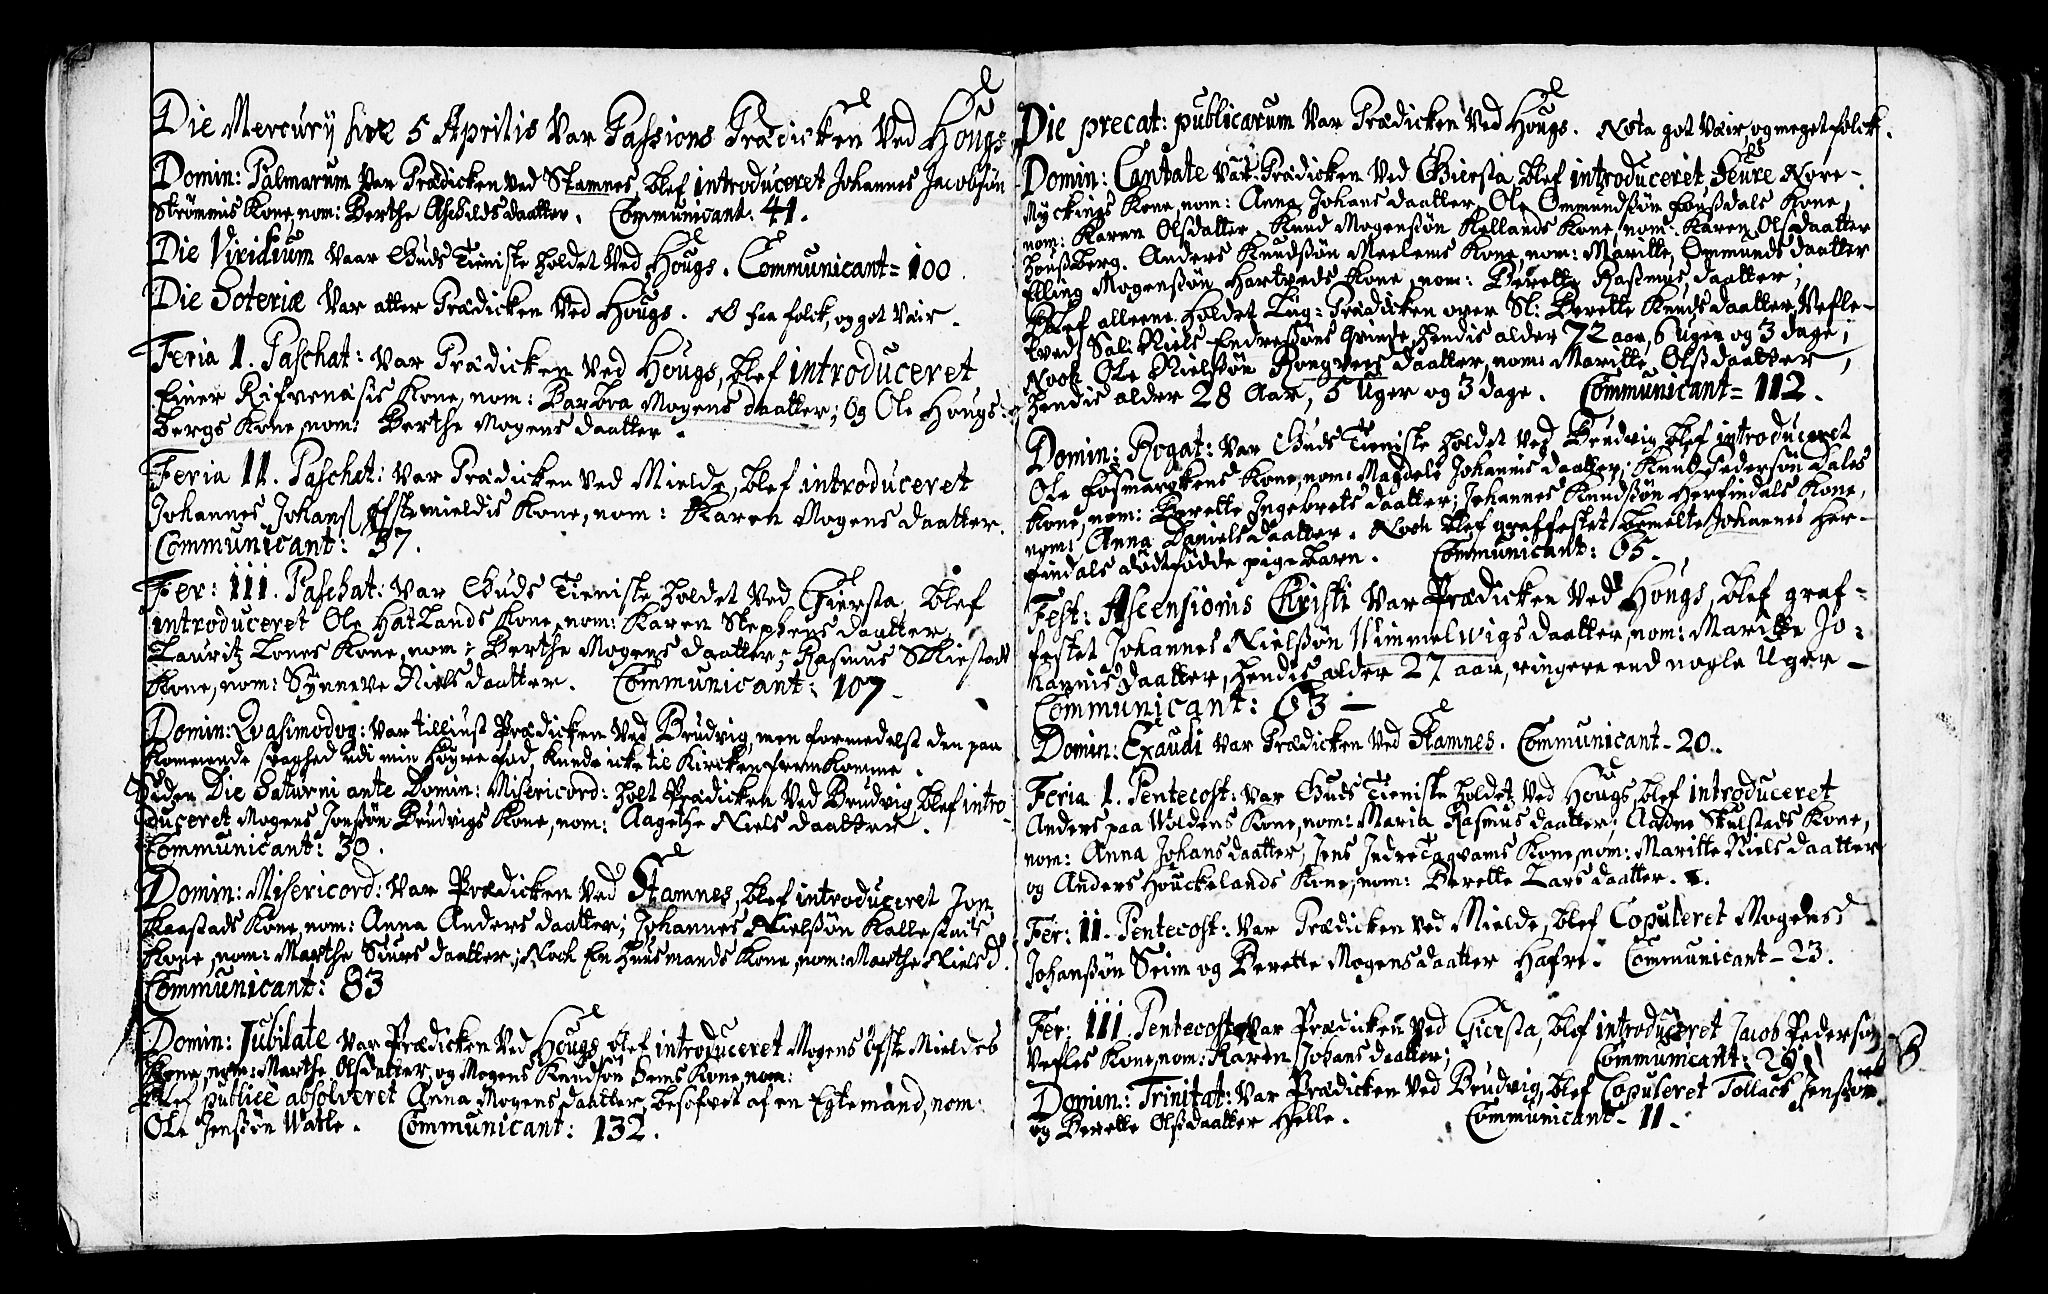 Die Mercurij sive 5 Aprilis var Passions Prædicken ved Hougs
Domin: Palmarum var Prædicken ved Stamnes, blef introduceret Johannes Jacobsøn
Strømmis Kone, nom: Berthe Aschilds daatter. Communicant: 41.
Die Viridium vaar Guds Tieniste holdet ved Hougs. Communicant= 100.
Die Soteriæ var atter Prædicken ved Hougs. NB faa folck, og got vair.
Feria 1. Paschat: var Prædicken ved Hougs, blef introduceret
Einer Rifvenæsis Kone, nom: Barbra Mogens daatter; og Ole Hougs:
bergs Kone, nom: Berthe Mogens daatter.
Feria 11. Paschat: var Prædicken ved Mielde, blef introduceret
Johannes Johanß Øfstemieldis Kone, nom: Karen Mogens daatter.
Communicant: 37.
Fer: iii. Paschat: var Guds Tieniste holdet ved Giersta, blef
introduceret Ole Hatlands Kone, nom: Karen Stephens daatter,
Lauritz Lones Kone, nom: Berthe Mogens daatter; Rasmus Skiestads
Kone, nom: Synneve Niels daatter. Communicant: 107
Domin: Qvasimodog: var tilliust Prædicken ved Brudvig, men formedelst den paa
kommende svaghed udi min høyre fod, kunde icke til Kircken fremkomme.
Siden Die Saturni ante Domin: Misericord: holt Prædicken ved Brudvig, blef intro-
duceret Mogens Jonßøn Brudvigs Kone, nom: Aagethe Niels daatter.
Communicant: 30.
Domin: Misericord: var Prædicken ved Stamnes, blef introduceret Jon
Kaastads Kone, nom: Anna Anders daatter; Johannes Nielßøn Kallestads
Kone, nom: Marthe Siurs daatter; Noch En Huusmands Kone, nom: Marthe Niels d.
Communicant: 83
Domin: Jubilate var Prædicken ved Hougs, blef introduceret Mogens Øfste Mieldes
Kone, nom: Marthe Olsdatter, og Mogens Knudsøn Seims Kone, nom:
Blef publicè absolveret Anna Mogens daatter, besofvet af en Egtemand, nom:
Ole Jenßøn Watle. Communicant: 132.
Die precat: publicarum var Prædicken ved Hougs. Nota got vair, og meget folck.
Domin: Cantate var Prædicken ved Giersta, blef introduceret Seure Nore-
Myckings Kone, nom: Anna Johans daatter, Ole Ommundsøn Foußdals Kone,
nom: Karen Olsdatter, Knud Mogenßøn Kellands Kone, nom: Karen Olsdaatter
Houßberg. Anders Knudßøn Meelems Kone, nom: Maritte Ommunds daatter
Elling Mogenßøn Hartveds Kone, nom: Berette Rasmus daatter;
Blef alleene holdet Liig-Prædicken over Sl: Berette Knuds daatter Vefle-
tved, Sal: Niels Endreßøns Qvinde, hendis alder 72 aar, 6 uger og 3 dage;
Nock Ole Nielßøn Rongves daatter, nom: Maritte Olßdaatter,
hendis alder 28 Aar, 5 Uger og 3 dage. Communicant= 112.
Domin: Rogat: var Guds Tieniste holdet ved Brudvig, blef introduceret
Ole Fosmarckens Kone, nom: Magdele Johannis daatter; Knud Pedersøn Dales
Kone, nom: Berette Ingebrets daatter; Johannes Knudßøn Herfindals Kone,
nom: Anna Daniels daatter. Noch blef graffestet bemelte Johannes Her-
findals dødtfødde pigebarn. Communicant: 65.
Fest: Ascensionis Christi var Prædicken ved Hougs, blef graf-
festet Johannes Nielßøn Wimmelwigs daatter, nom: Maritte Jo-
hannis daatter, hendis alder 27 aar, ringere end nogle Uger
Communicant: 63
Domin: Exaudi var Prædicken ved Stamnes. Communicant- 20.
Feria 1. Pentecost: var Guds Tieniste holdet ved Hougs, blef introduceret
Anders paa Woldens Kone, nom: Maria Rasmus daatter; Aadne Skulstads Kone,
nom: Anna Johans daatter, Jens Indre Tagvams Kone, nom: Maritte Niels daatter
og Anders Houckelands Kone, nom: Berette Lars daatter.
Fer: ii. Pentecost: var Prædicken ved Mielde, blef Copuleret Mogens
Johanßøn Seim og Berette Mogens daatter Hafre. Communicant- 23.
Fer: 111. Pentecost: var Prædicken ved Giersta, blef introduceret Jacob Pedersøn
Vefles Kone, nom: Karen Johans daatter; Communicant: 29
Domin: Trinitat: var Prædicken ved Brudvig, blef Copuleret Tollack Jensøn
og Berette Olßdaatter Helle. Communicant- 11.
8.